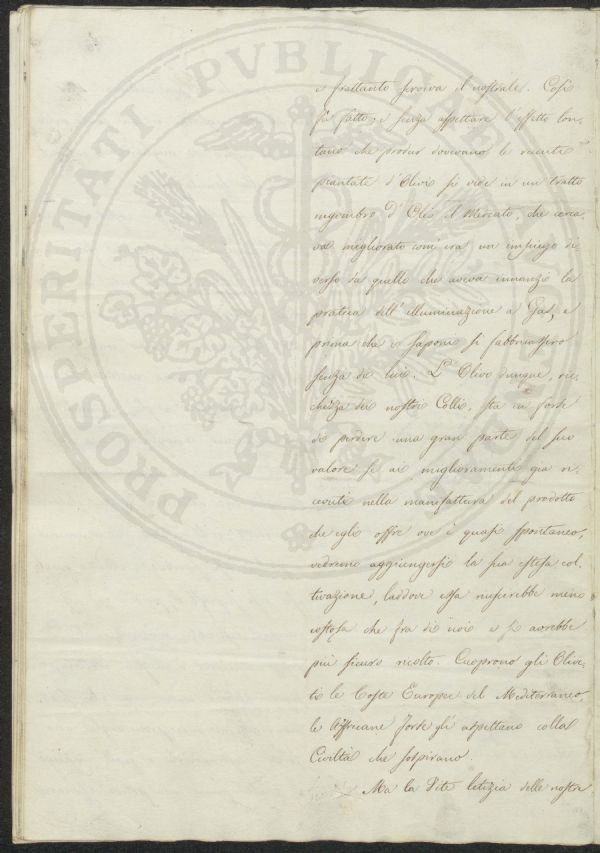 PROSPERITATI PVBLICAE
e frattanto serviva il nostrale. Così
fu fatto; e senza aspettare l'effetto lon-
tano che produr dovevano le recenti
piantate d'Olivi si vide in un tratto
ingombro d'Olio il Mercato, che cerca-
va migliorato com'era un impiego di-
verso da quello che aveva innanzi la
pratica dell'illuminazione a Gas, e
prima che i Saponi si fabbricassero
senza di lui. L'Olivo dunque, ric-
chezza dei nostri Colli, sta in forse
di perdere una gran parte del suo
valore se ai miglioramenti già ri-
cevuti nella manifattura del prodotto
che egli offre ove è quasi spontaneo,
vedremo aggiungersi la sua estesa col-
tivazione, laddove essa riuscirebbe meno
costosa che fra di noi e si avrebbe
più sicuro ricolto. Cuoprono gli Olive-
ti le Coste Europee del Mediterraneo,
le Affricane forse gli aspettano colla
Civiltà che sospirano.
Ma la Vite letizia delle nostre